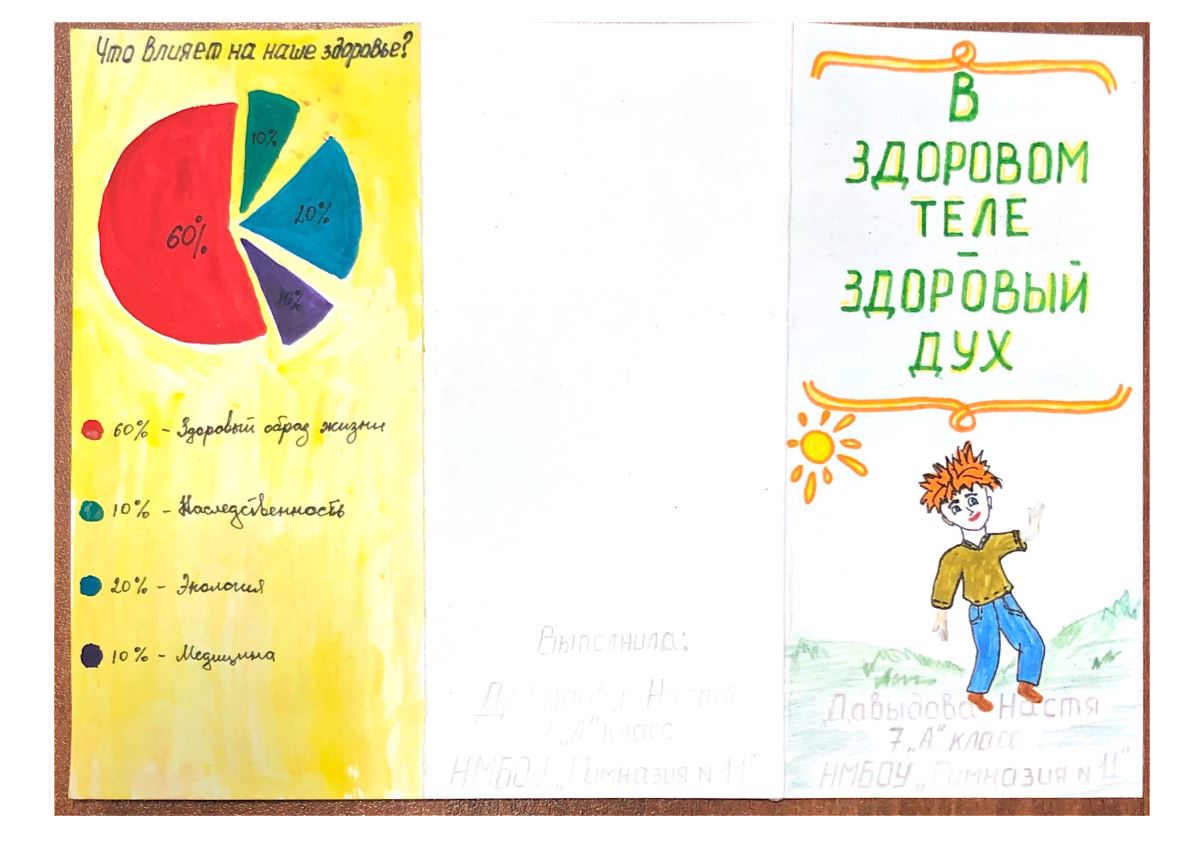 Что влияет на наше здоровье?
10%
20%
60%
10%
60% - Здоровый образ жизни
10% - Наследственность
20% - Экология
10% - Медицина
Выполнила:
Давыдова Настя
7 „А" класс
НМБОУ „Гимназия N 11"
В
ЗДОРОВОМ
ТЕЛЕ
–
ЗДОРОВЫЙ
ДУХ
Давыдова Настя
7 „А" класс
НМБОУ „Гимназия N 11"